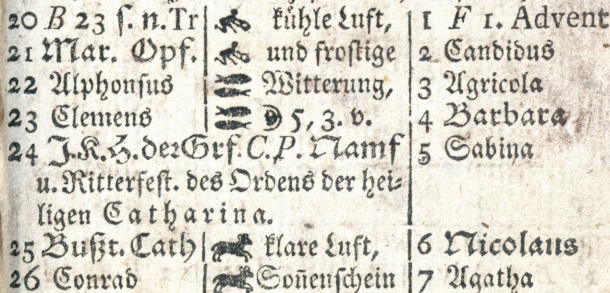 20 B 23 s. n. Tr kühle Luft, 1 F 1. Advent
21 Mar. Opf. und frostige 2 Candidus
22 Alphonsus Witterung, 3 Agricola
23 Clemens 5, 3. v. 4 Barbara
24 J. K. H. der Grf. C. P. Namf 5 Sabina
u. Ritterfest. des Ordens der hei-
ligen Catharina.
25 Bußt. Cath klare Luft, 6 Nicolaus
26 Conrad Soñenschein 7 Agatha